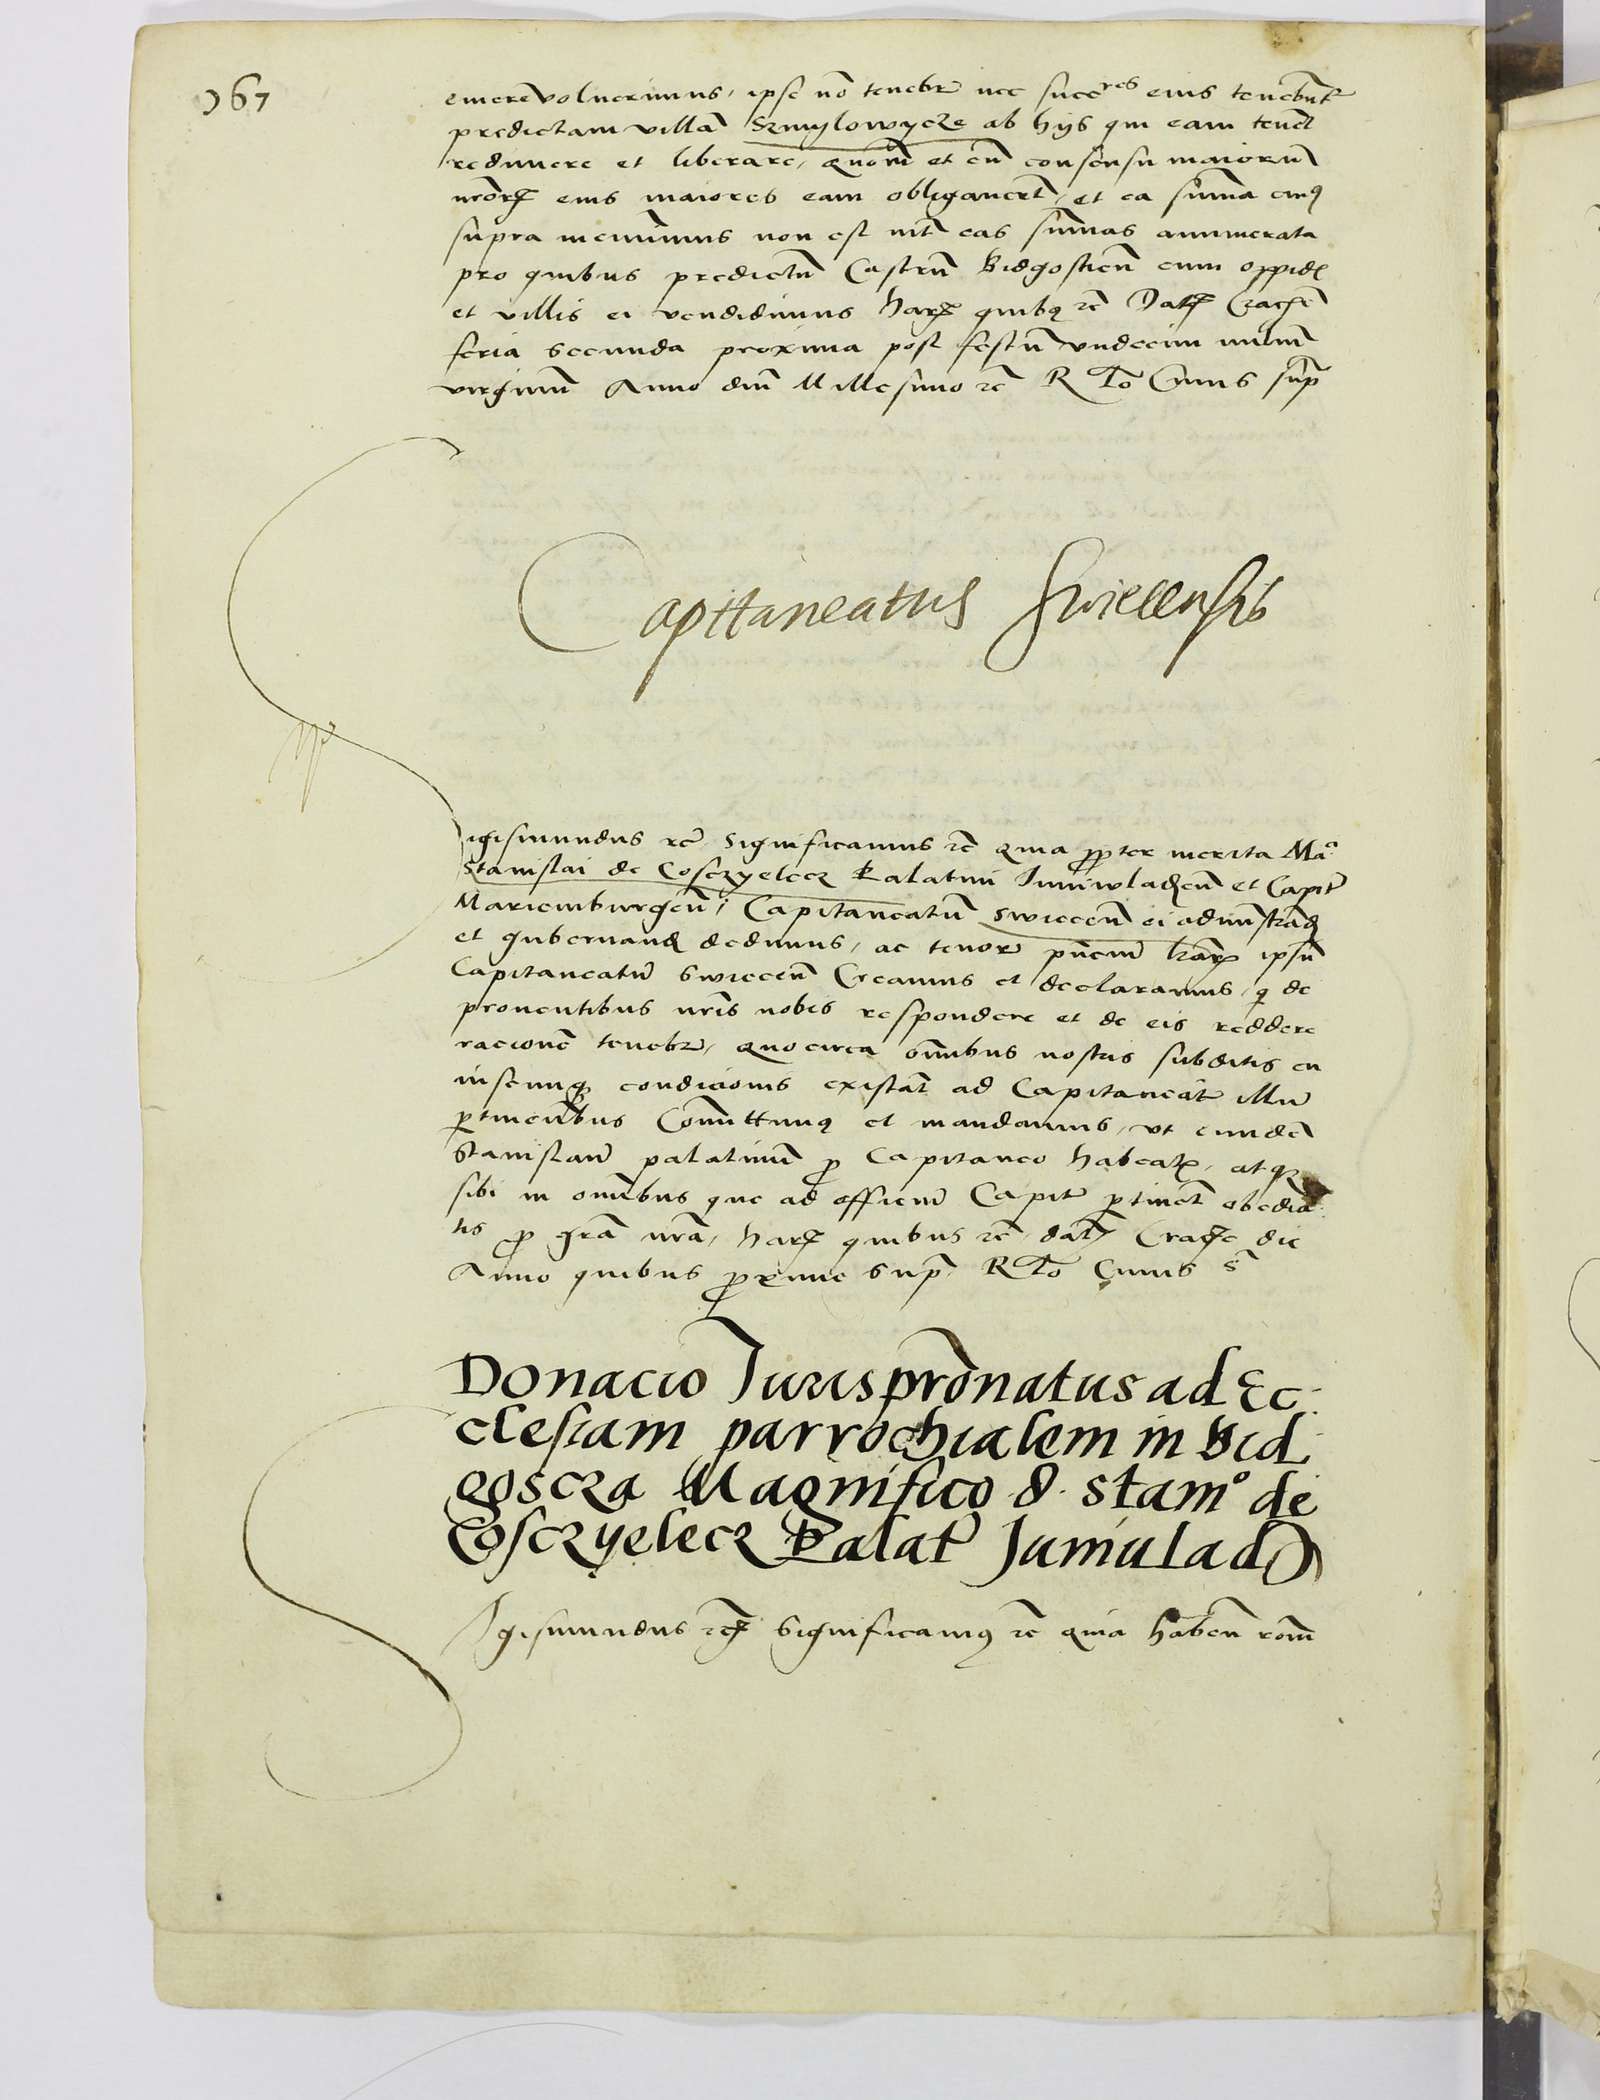 967
emere voluerimus, ipse nō tenebr̄ nec succres eius tenebūt
predictam villā Szmylowycze ab hijs qui eam tenēt
redimere et liberare, quom̄ et cū consensu maiorū
nror̄ eius maiores eam obligauerūt, et ea sūma cuiꝯ
supra meminimus non est int̄ eas sūmas annumerata
pro quibus predictū Castrū Bidgosticn̄ cum oppid
et villis ei vendidimus Har̄ quibꝯ zc̄ Dat̄ Crac̄
feria secunda proxima post festū vndecim miliū
virginū Anno dnī Millesimo zc̄ R To Cuius sup̄
Capittaneatus Swiecensis
Sigismundus zc̄ Significamus zc̄ quia propter merita Mā
Stanislai de Cosczyelecz Palatini Iuniwladen̄ et Capit̄
Mariemburgen̄, Capitaneatū Swiecen̄ ei administrand
et gubernand dedimus, ac tenor̄ pn̄cium lrar̄ ipsū
Capitaneatū Swiecen̄ Creamus et declaramus, q̄ de
prouentibus nr̄is nobis respondere et de eis reddere
racionē tenebr̄, quocirca om̄ibus nostris subditis cu
iuscunqꝫ condicionis existāt ad Capitaneāt illū
ptinentibus Comittimꝯ et mandamus, vt eundē
Stanislaū palatinū p Capitaneo habeatꝭ, atqꝫ
sibi in om̄ibus que ad officiū Capit̄ ptinēt obedia
tis p gr̄a nr̄a, Har̄ quibus zc̄, dat̄ Crac̄ die
Anno quibus proxime sup̄, R To Cuius S̄
Donacio Iurispr̄onatus ad Ec:
clesiam parrochialem in Bid
goscza Magnifico d. stamᵒ de
Cosczyelecz Palat̄ Juniulad
Sigismundus zc̄ Significamꝯ zc̄ quia haben̄ rōm̄